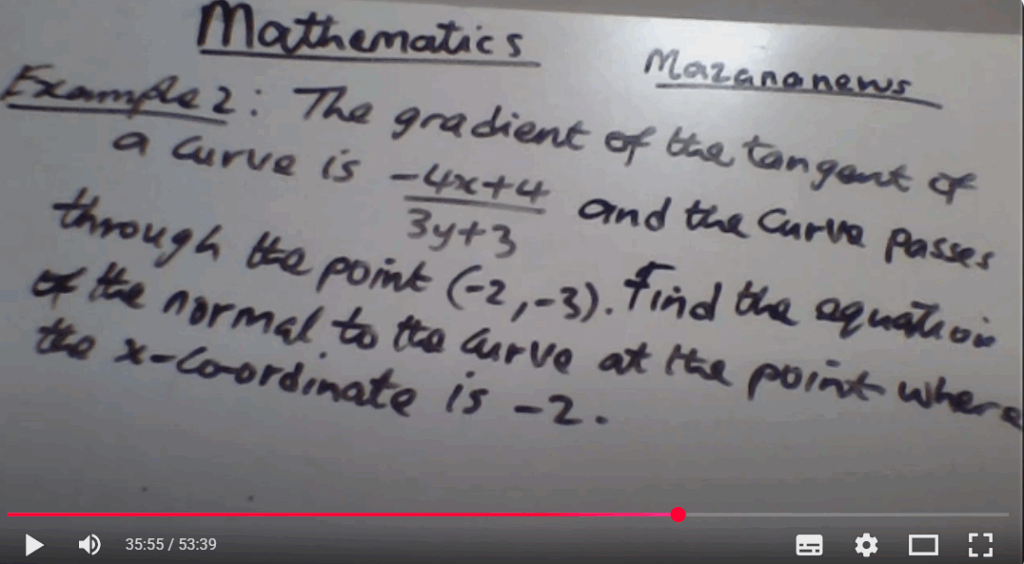 Mathematics
Mazananews
Example 2: The gradient of the tangent of
a curve is -4x+4 / 3y+3 and the curve passes
through the point (-2,-3). Find the equation
of the normal to the curve at the point where
the x-co-ordinate is -2.
35:55 / 53:39